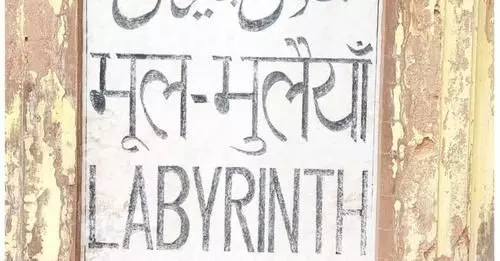 भूल-भुलैयाँ
LABYRINTH